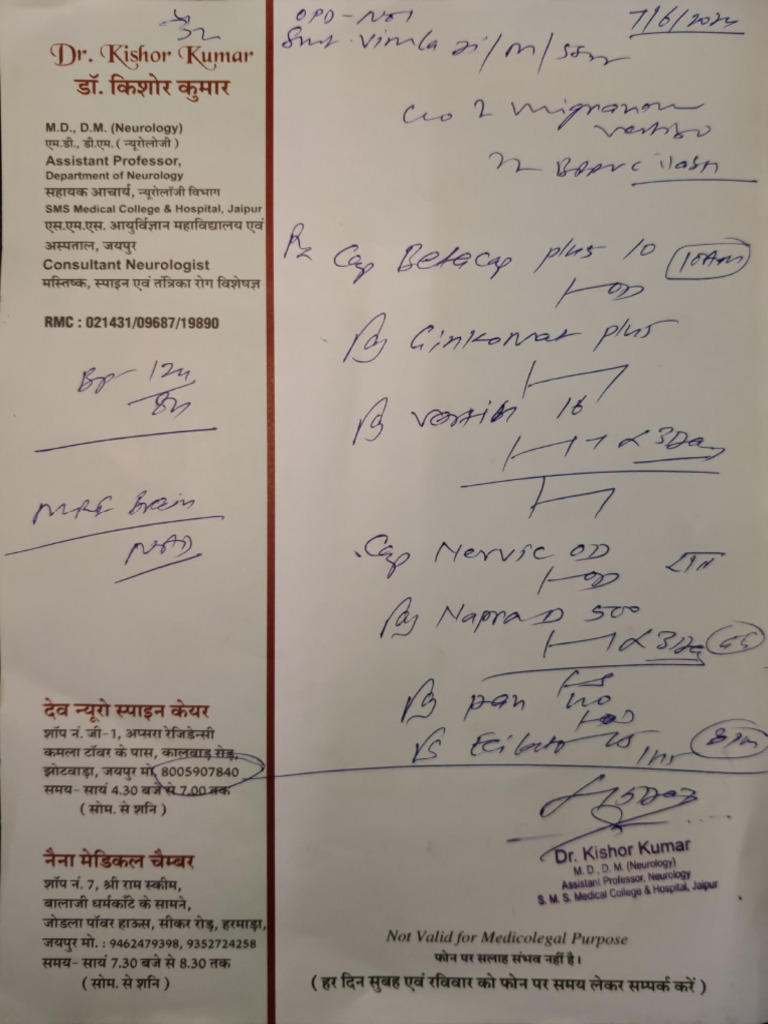 Dr. Kishor Kumar
डॉ. किशोर कुमार
M.D., D.M. (Neurology)
एम.डी., डी.एम. ( न्यूरोलोजी )
Assistant Professor,
Department of Neurology
सहायक आचार्य, न्यूरोलॉजी विभाग
SMS Medical College & Hospital, Jaipur
एस.एम.एस. आयुर्विज्ञान महाविद्यालय एवं
अस्पताल, जयपुर
Consultant Neurologist
मस्तिष्क, स्पाइन एवं तंत्रिका रोग विशेषज्ञ
RMC : 021431/09687/19890
BP-
MRI Brain
NAD
देव न्यूरो स्पाइन केयर
शॉप नं. जी-1, अप्सरा रेजिडेन्सी
कमला टॉवर के पास, कालवाड़ रोड़,
झोटवाड़ा, जयपुर मो. 8005907840
समय- सायं 4.30 बजे से 7.00 तक
( सोम. से शनि )
नैना मेडिकल चैम्बर
शॉप नं. 7, श्री राम स्कीम,
बालाजी धर्मकाँटे के सामने,
जोडला पॉवर हाऊस, सीकर रोड़, हरमाड़ा,
जयपुर मो. : 9462479398, 9352724258
समय- सायं 7.30 बजे से 8.30 तक
( सोम. से शनि )
7/6/2024
Smt. Vimla
vertigo
Rx Cap Betacap plus 10 10AM
OD
Ginkomat plus
Vertin 16
3Day
Cap Nervic OD
OD
Napra D 500
3Day
Pan 40
8pm
15Day
Dr. Kishor Kumar
M. D., D. M. (Neurology)
Assistant Professor, Neurology
S. M. S. Medical College & Hospital, Jaipur
Not Valid for Medicolegal Purpose
फोन पर सलाह संभव नहीं है।
( हर दिन सुबह एवं रविवार को फोन पर समय लेकर सम्पर्क करें )